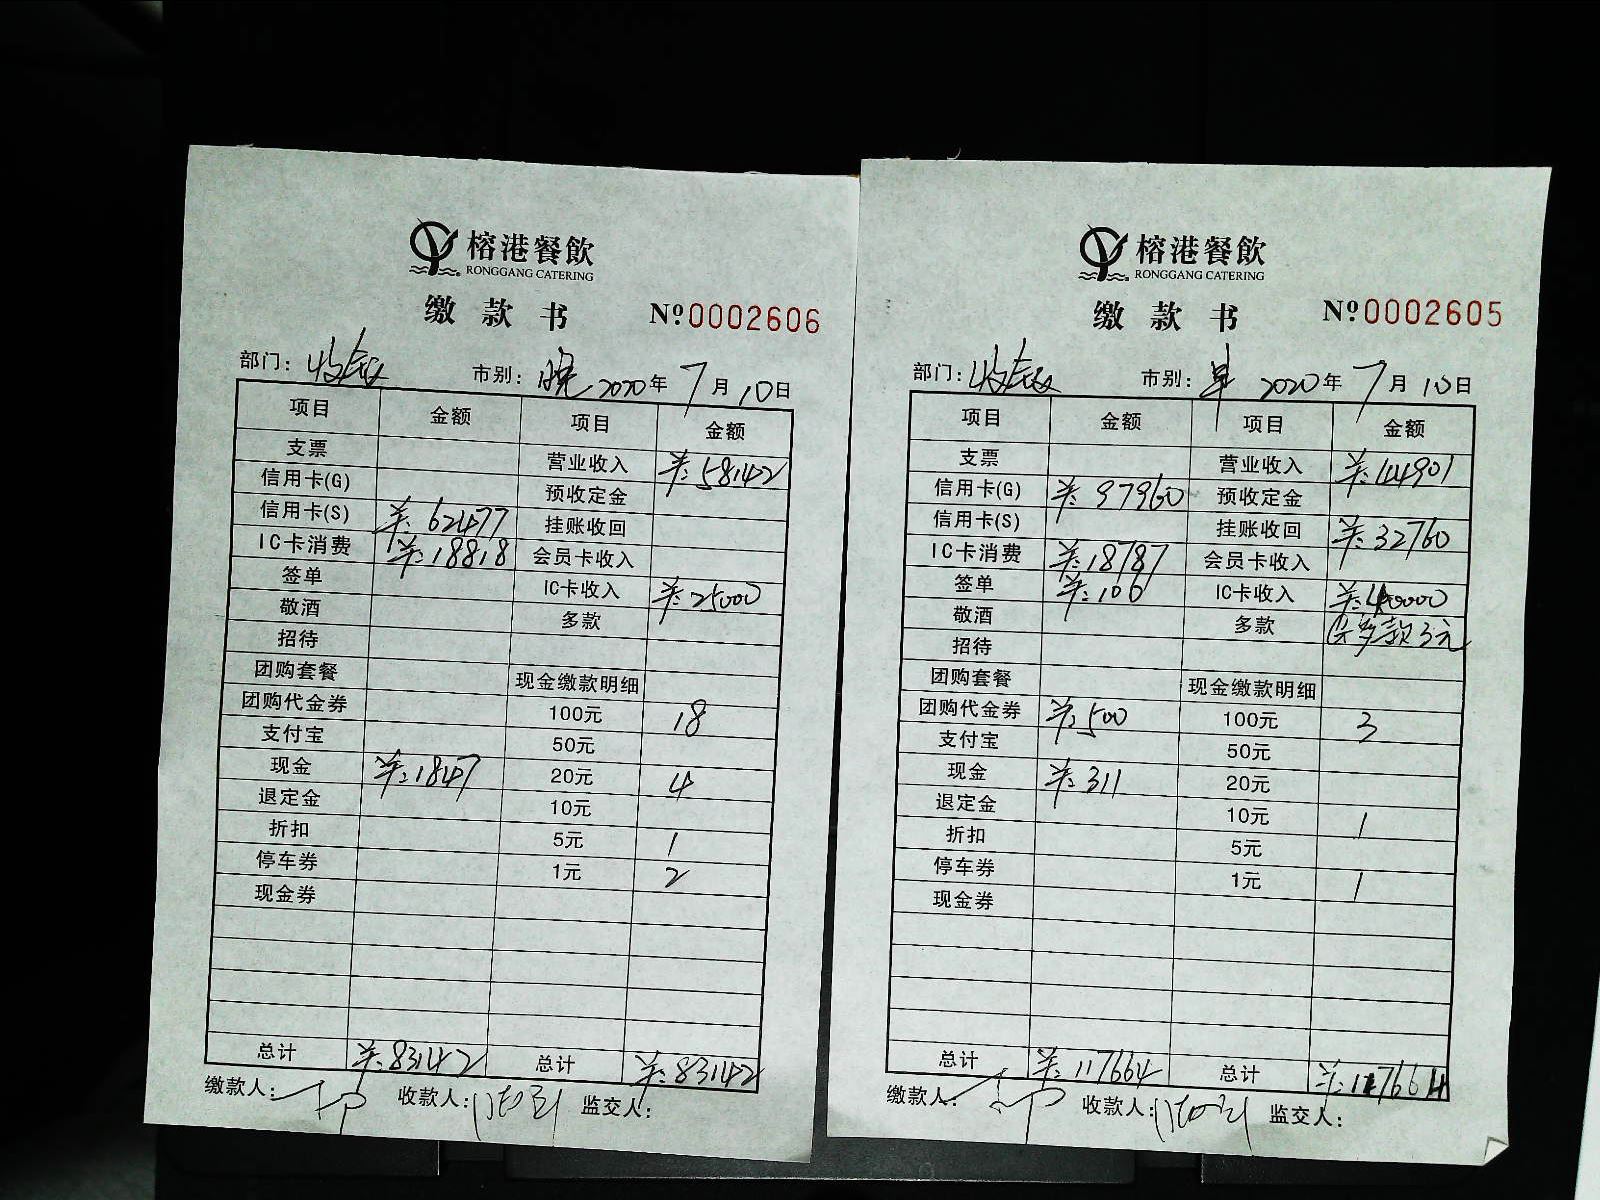 榕港餐飲
RONGGANG CATERING
缴款书 Nº0002606
部门：收银 市别：晚 2020年7月10日
项目 金额 项目 金额
支票 营业收入 ¥:58142
信用卡(G) 预收定金
信用卡(S) ¥:62477 挂账收回
IC卡消费 ¥:18818 会员卡收入
签单 IC卡收入 ¥:25000
敬酒 多款
招待
团购套餐 现金缴款明细
团购代金券 100元 18
支付宝 50元
现金 ¥:1847 20元 4
退定金 10元
折扣 5元 1
停车券 1元 2
现金券
总计 ¥:83142 总计 ¥:83142
缴款人： 收款人： 监交人：
榕港餐飲
RONGGANG CATERING
缴款书 Nº0002605
部门：收银 市别：早 2020年7月10日
项目 金额 项目 金额
支票 营业收入 ¥:44901
信用卡(G) ¥:97960 预收定金
信用卡(S) 挂账收回 ¥:32760
IC卡消费 ¥:18787 会员卡收入
签单 ¥:106 IC卡收入 ¥:40000
敬酒 多款 多款3元
招待
团购套餐 现金缴款明细
团购代金券 ¥:500 100元 3
支付宝 50元
现金 ¥:311 20元
退定金 10元 1
折扣 5元
停车券 1元 1
现金券
总计 ¥:117664 总计 ¥:117664
缴款人： 收款人： 监交人：